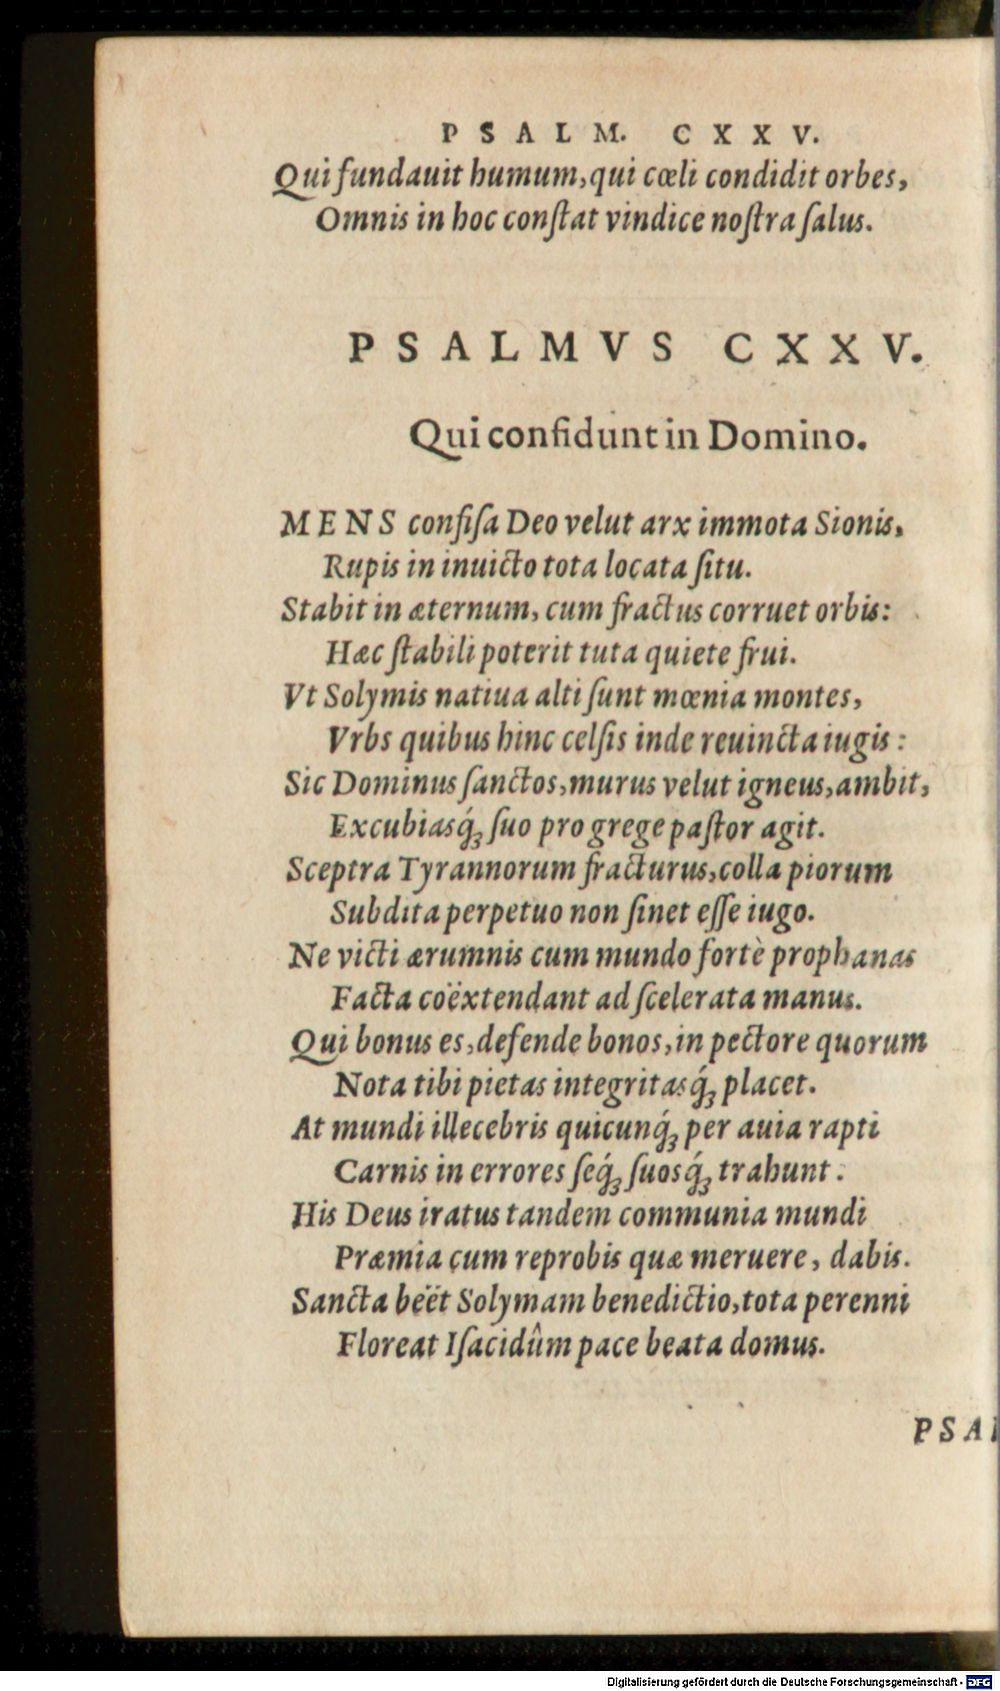 PSALM. CXXV.
Qui fundauit humum, qui cœli condidit orbes,
Omnis in hoc conſtat vindice noſtra ſalus.
PSALMVS CXXV.
Qui confidunt in Domino.
MENS confiſa Deo velut arx immota Sionis,
Rupis in inuicto tota locata ſitu.
Stabit in æternum, cum fractus corruet orbis:
Hæc ſtabili poterit tuta quiete frui.
Vt Solymis natiua alti ſunt mœnia montes,
Vrbs quibus hinc celſis inde reuincta iugis:
Sic Dominus ſanctos, murus velut igneus, ambit,
Excubiasq́ꝫ ſuo pro grege paſtor agit.
Sceptra Tyrannorum fracturus, colla piorum
Subdita perpetuo non ſinet eſſe iugo.
Ne victi ærumnis cum mundo fortè prophanas
Facta coëxtendant ad ſcelerata manus.
Qui bonus es, defende bonos, in pectore quorum
Nota tibi pietas integritasq́ꝫ placet.
At mundi illecebris quicunq́ꝫ per auia rapti
Carnis in errores ſeq́ꝫ ſuosq́ꝫ trahunt:
His Deus iratus tandem communia mundi
Præmia cum reprobis quæ meruere, dabis.
Sancta beët Solymam benedictio, tota perenni
Floreat Iſacidûm pace beata domus.
PSA
Digitalisierung gefördert durch die Deutsche Forschungsgemeinschaft - DFG